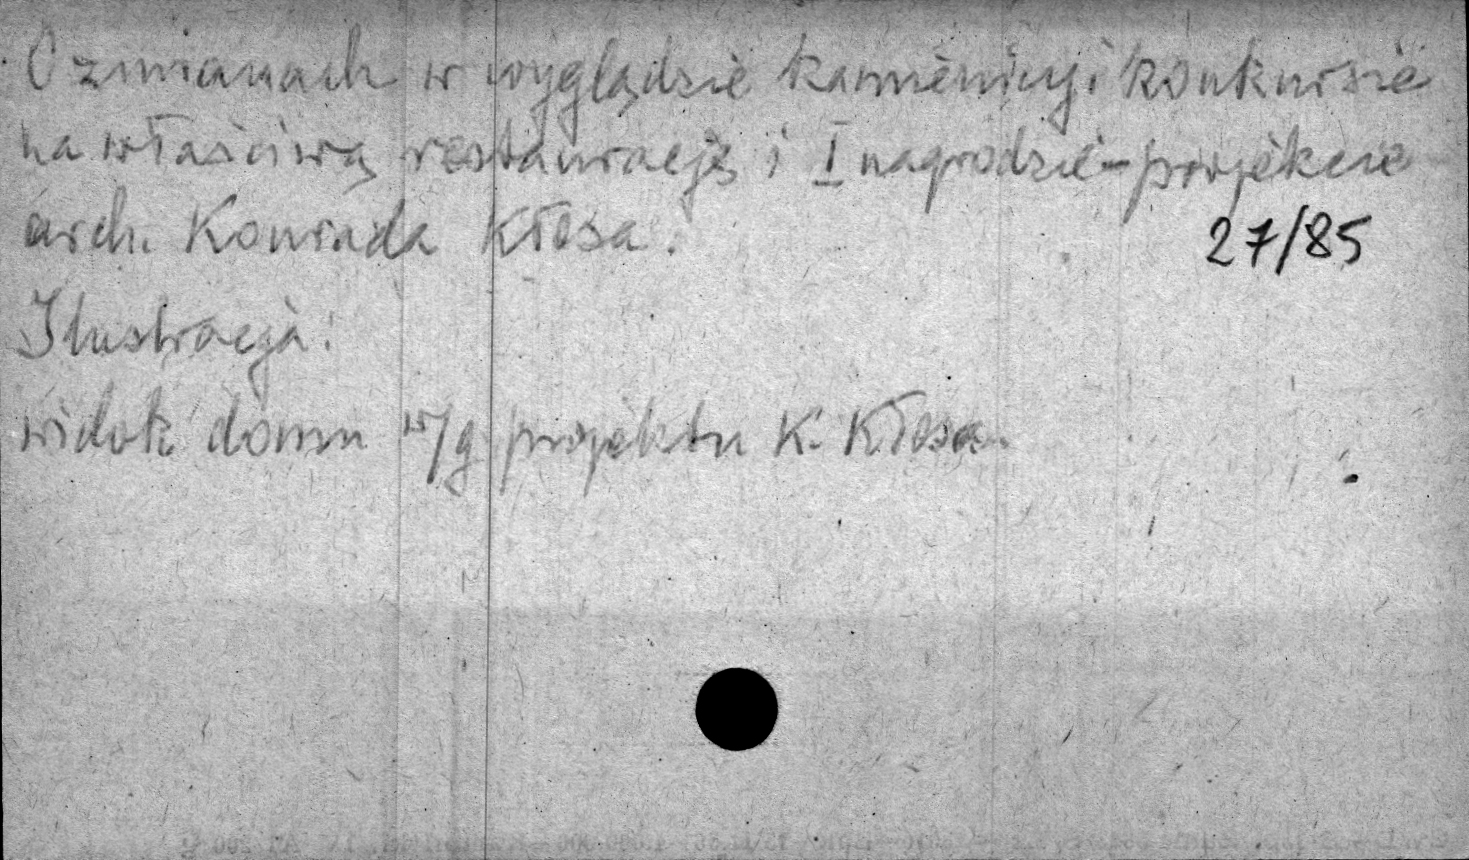 O zmianach w wyglądzie kamienicy i konkursie
na właściwą restaurację i I nagrodzie-projekcie
arch. Konrada Kłosa.
27/85
Ilustracja:
widok domu w/g projektu K. Kłosa.